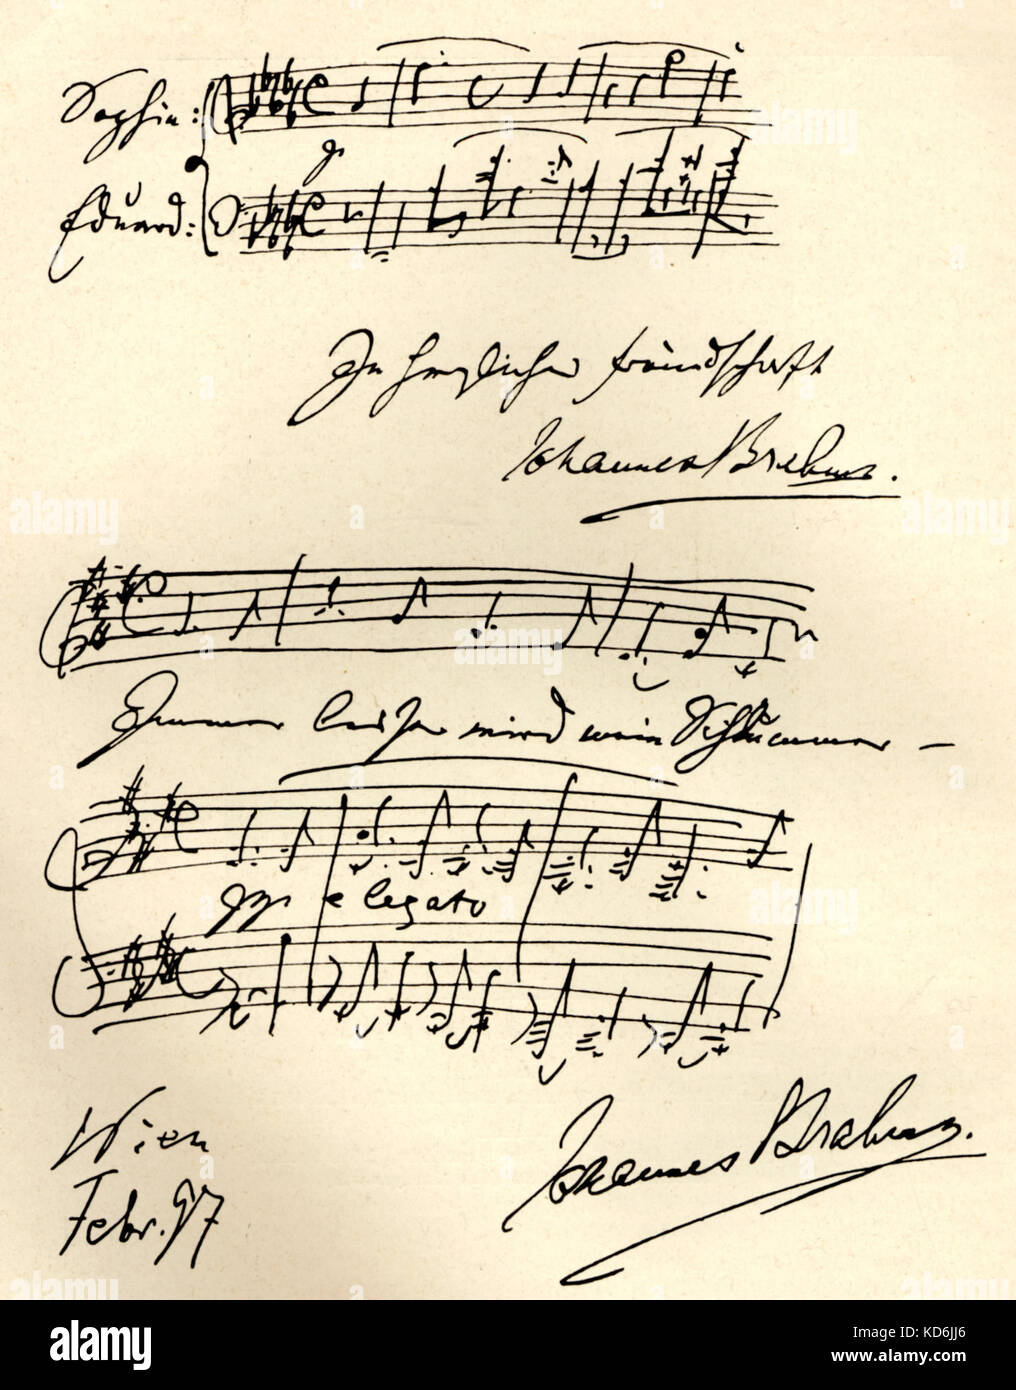 Sophie:
Eduard:
p
In herzlicher Freundschaft
Johannes Brahms.
Immer leiser wird mein Schlummer –
pp e legato
Wien
Febr. 97
Johannes Brahms.
alamy
Image ID: KD6JJ6
www.alamy.com